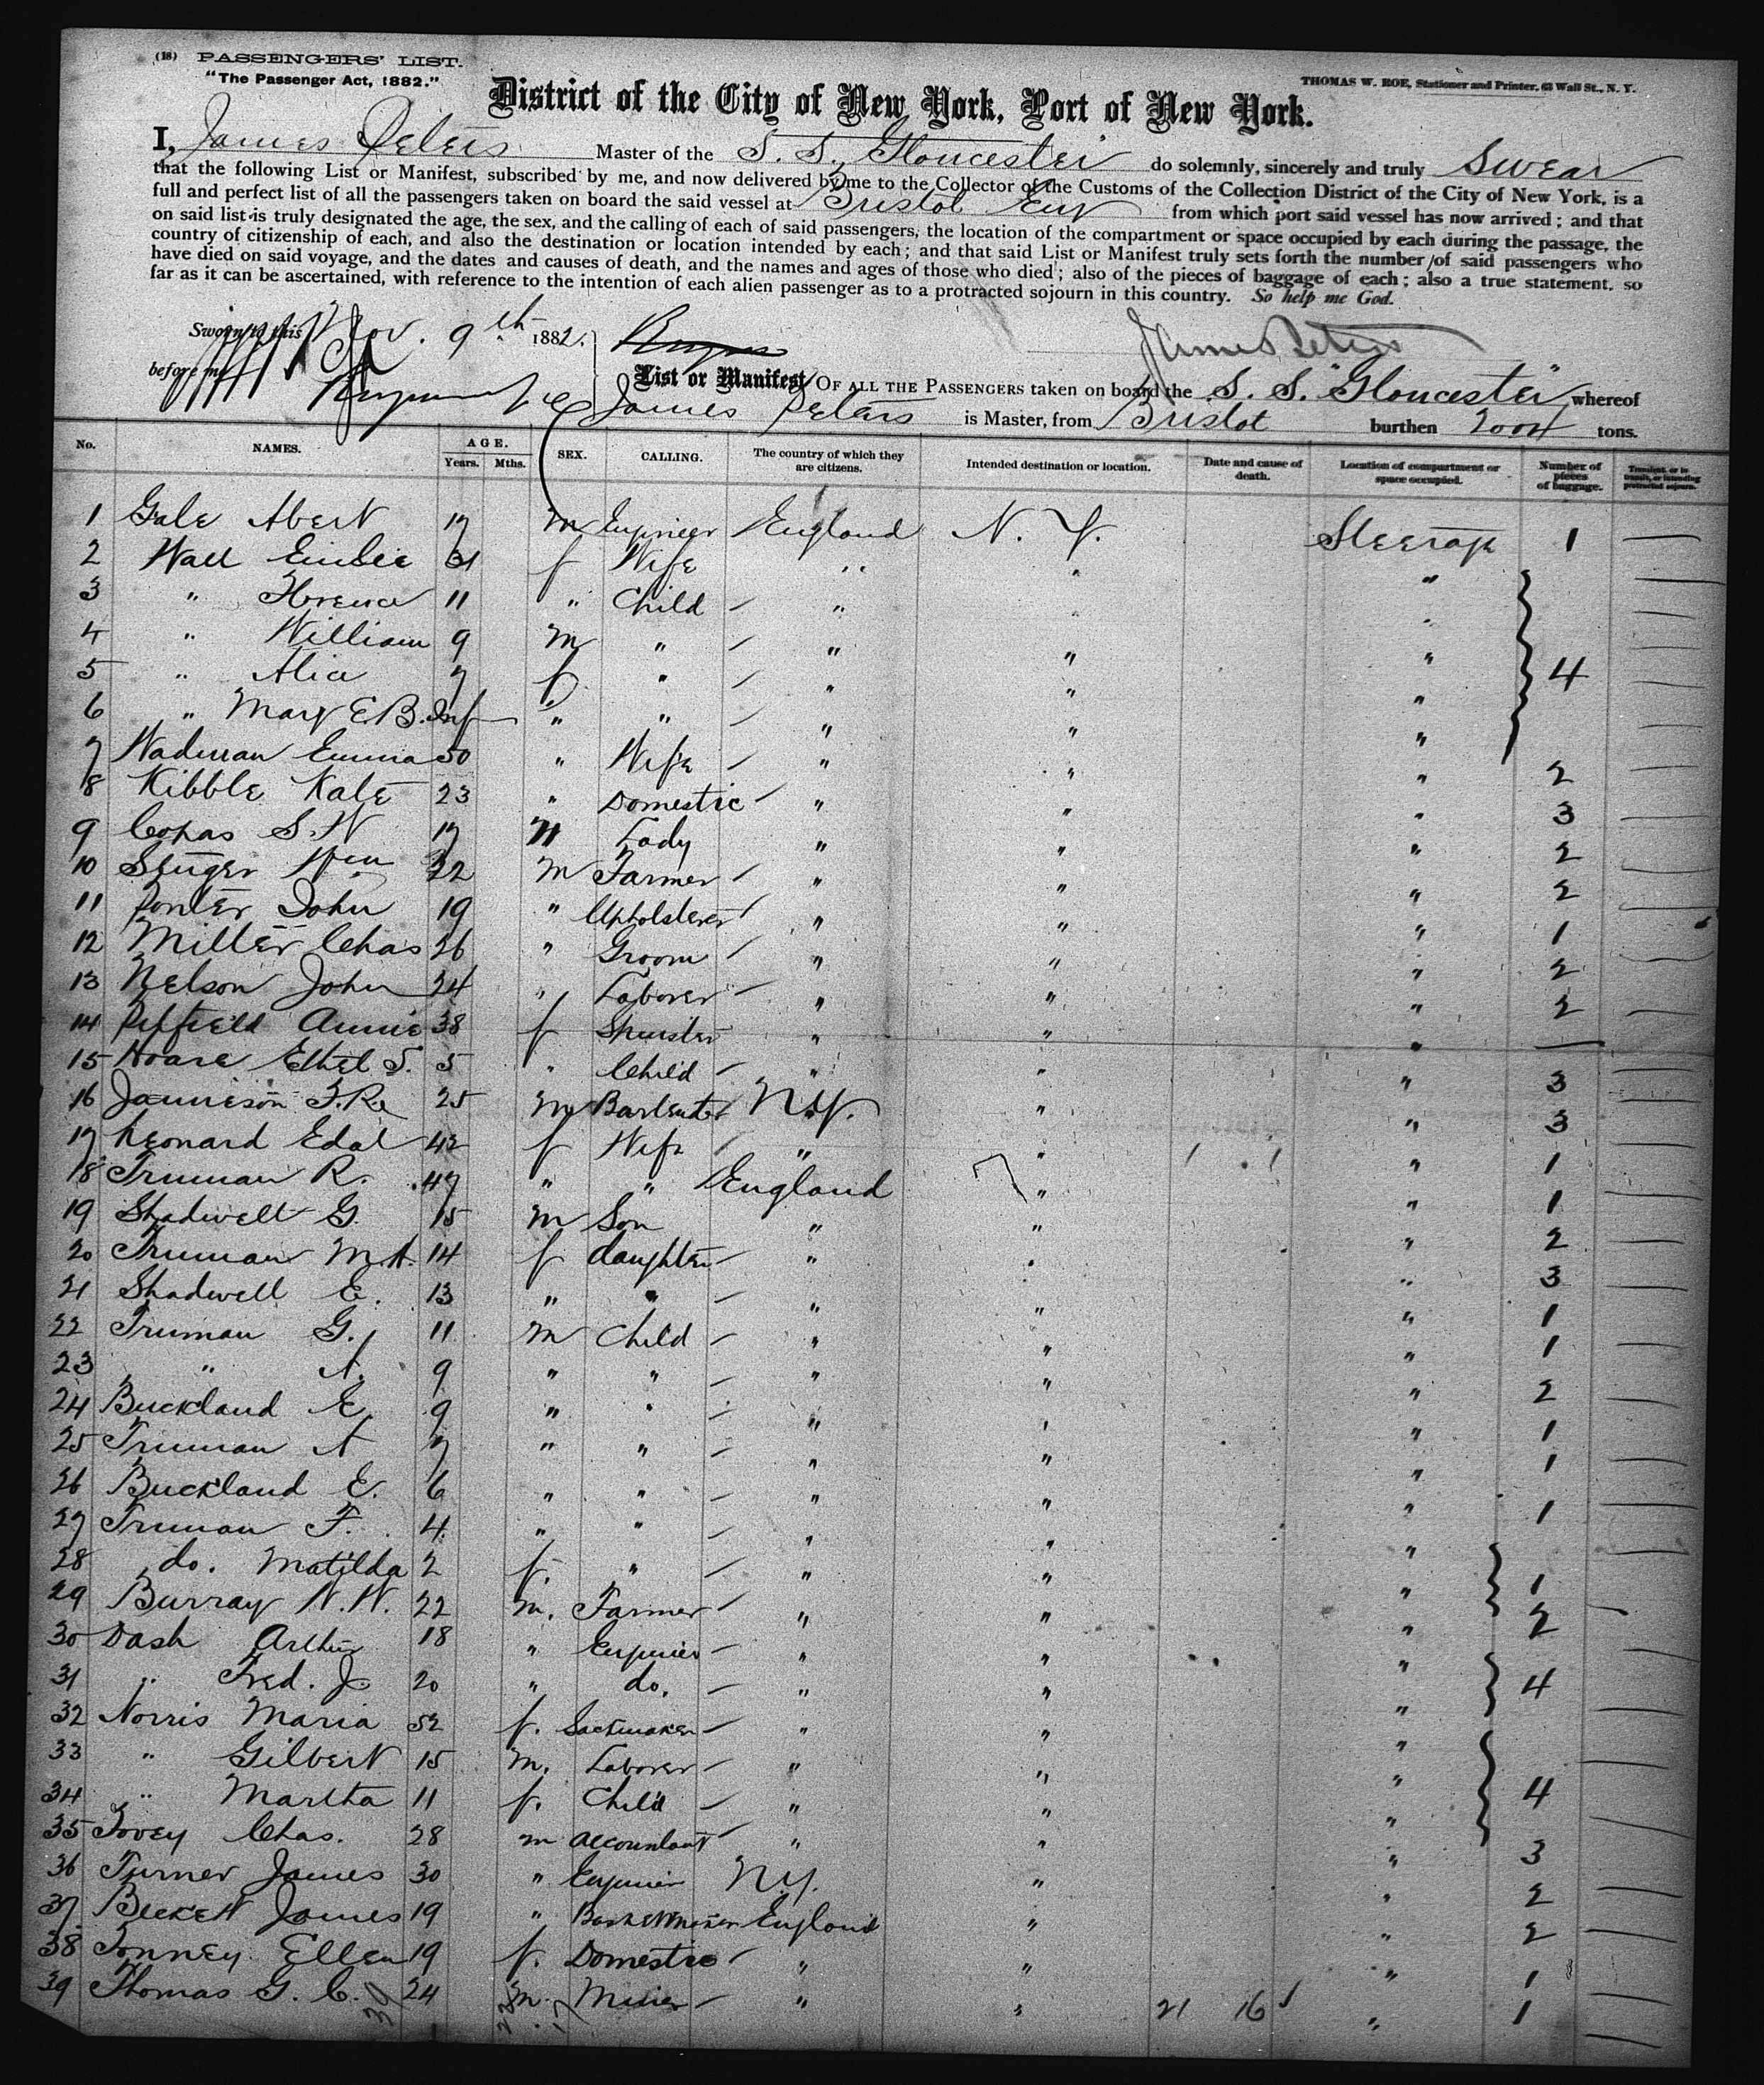 (18) PASSENGERS' LIST.
"The Passenger Act, 1882."
THOMAS W. ROE, Stationer and Printer, 63 Wall St., N. Y.
District of the City of New York, Port of New York.
I, James Peters Master of the S. S. Gloucester do solemnly, sincerely and truly swear
that the following List or Manifest, subscribed by me, and now delivered by me to the Collector of the Customs of the Collection District of the City of New York, is a
full and perfect list of all the passengers taken on board the said vessel at Bristol Eng from which port said vessel has now arrived; and that
on said list is truly designated the age, the sex, and the calling of each of said passengers, the location of the compartment or space occupied by each during the passage, the
country of citizenship of each, and also the destination or location intended by each; and that said List or Manifest truly sets forth the number of said passengers who
have died on said voyage, and the dates and causes of death, and the names and ages of those who died; also of the pieces of baggage of each; also a true statement, so
far as it can be ascertained, with reference to the intention of each alien passenger as to a protracted sojourn in this country. So help me God.
Sworn to this Nov. 9th 1882. James Peters
before me
List or Manifest OF ALL THE PASSENGERS taken on board the S. S. "Gloucester" whereof
James Peters is Master, from Bristol burthen 2004 tons.
No. NAMES. AGE. Years. Mths. SEX. CALLING. The country of which they are citizens. Intended destination or location. Date and cause of death. Location of compartment or space occupied. Number of pieces of baggage. Transient, or in transit, or intending protracted sojourn.
1 Gale Abert 17 m Engineer England N. Y. Steerage 1
2 Wall Emilie 31 f Wife " " "
3 " Florence 11 " Child " " "
4 " William 9 m " " " "
5 " Alice 7 f " " " " 4
6 " Mary E. B. Inf " " " " "
7 Wadman Emma 50 " Wife " " " 2
8 Kibble Kate 23 " Domestic " " " 3
9 Copas S. W 17 Lady " " " 2
10 Senger Wm 22 m Farmer " " " 2
11 John 19 " Upholsterer " " " 1
12 Miller Chas 26 " Groom " " " 2
13 Nelson John 24 " Laborer " " " 2
14 Annie 38 f Spinster " " " —
15 Hoare Ethel S. 5 " Child " " " 3
16 Jamieson 25 m Bartender N.Y. " " 3
17 Leonard Edal 42 f Wife " " " 1
18 Truman R. 47 " " England " " 1
19 Shadwell G. 15 m Son " " " 2
20 Truman M.A. 14 f daughter " " " 3
21 Shadwell E. 13 " " " " " 1
22 Truman G. 11 m Child " " " 1
23 " A. 9 " " " " " 2
24 Buckland E. 9 " " " " " 1
25 Truman A 7 " " " " " 1
26 Buckland E. 6 " " " " " 1
27 Truman F. 4 " " " " "
28 do. Matilda 2 f. " " " " 1
29 Burray W. W. 22 m. Farmer " " " 2
30 Dash Arthur 18 " Engineer " " "
31 " Fred. J. 20 " do. " " " 4
32 Norris Maria 52 f. Sackmaker " " "
33 " Gilbert 15 m. Laborer " " "
34 " Martha 11 f. Child " " " 4
35 Tovey Chas. 28 m accountant " " " 3
36 Turner James 30 " Engineer N.Y. " " 2
37 Beckett James 19 " Basketmaker England " " 2
38 Tonney Ellen 19 f. Domestic " " " 1
39 Thomas G. C. 24 m. Miner " " 21 16 " 1
39